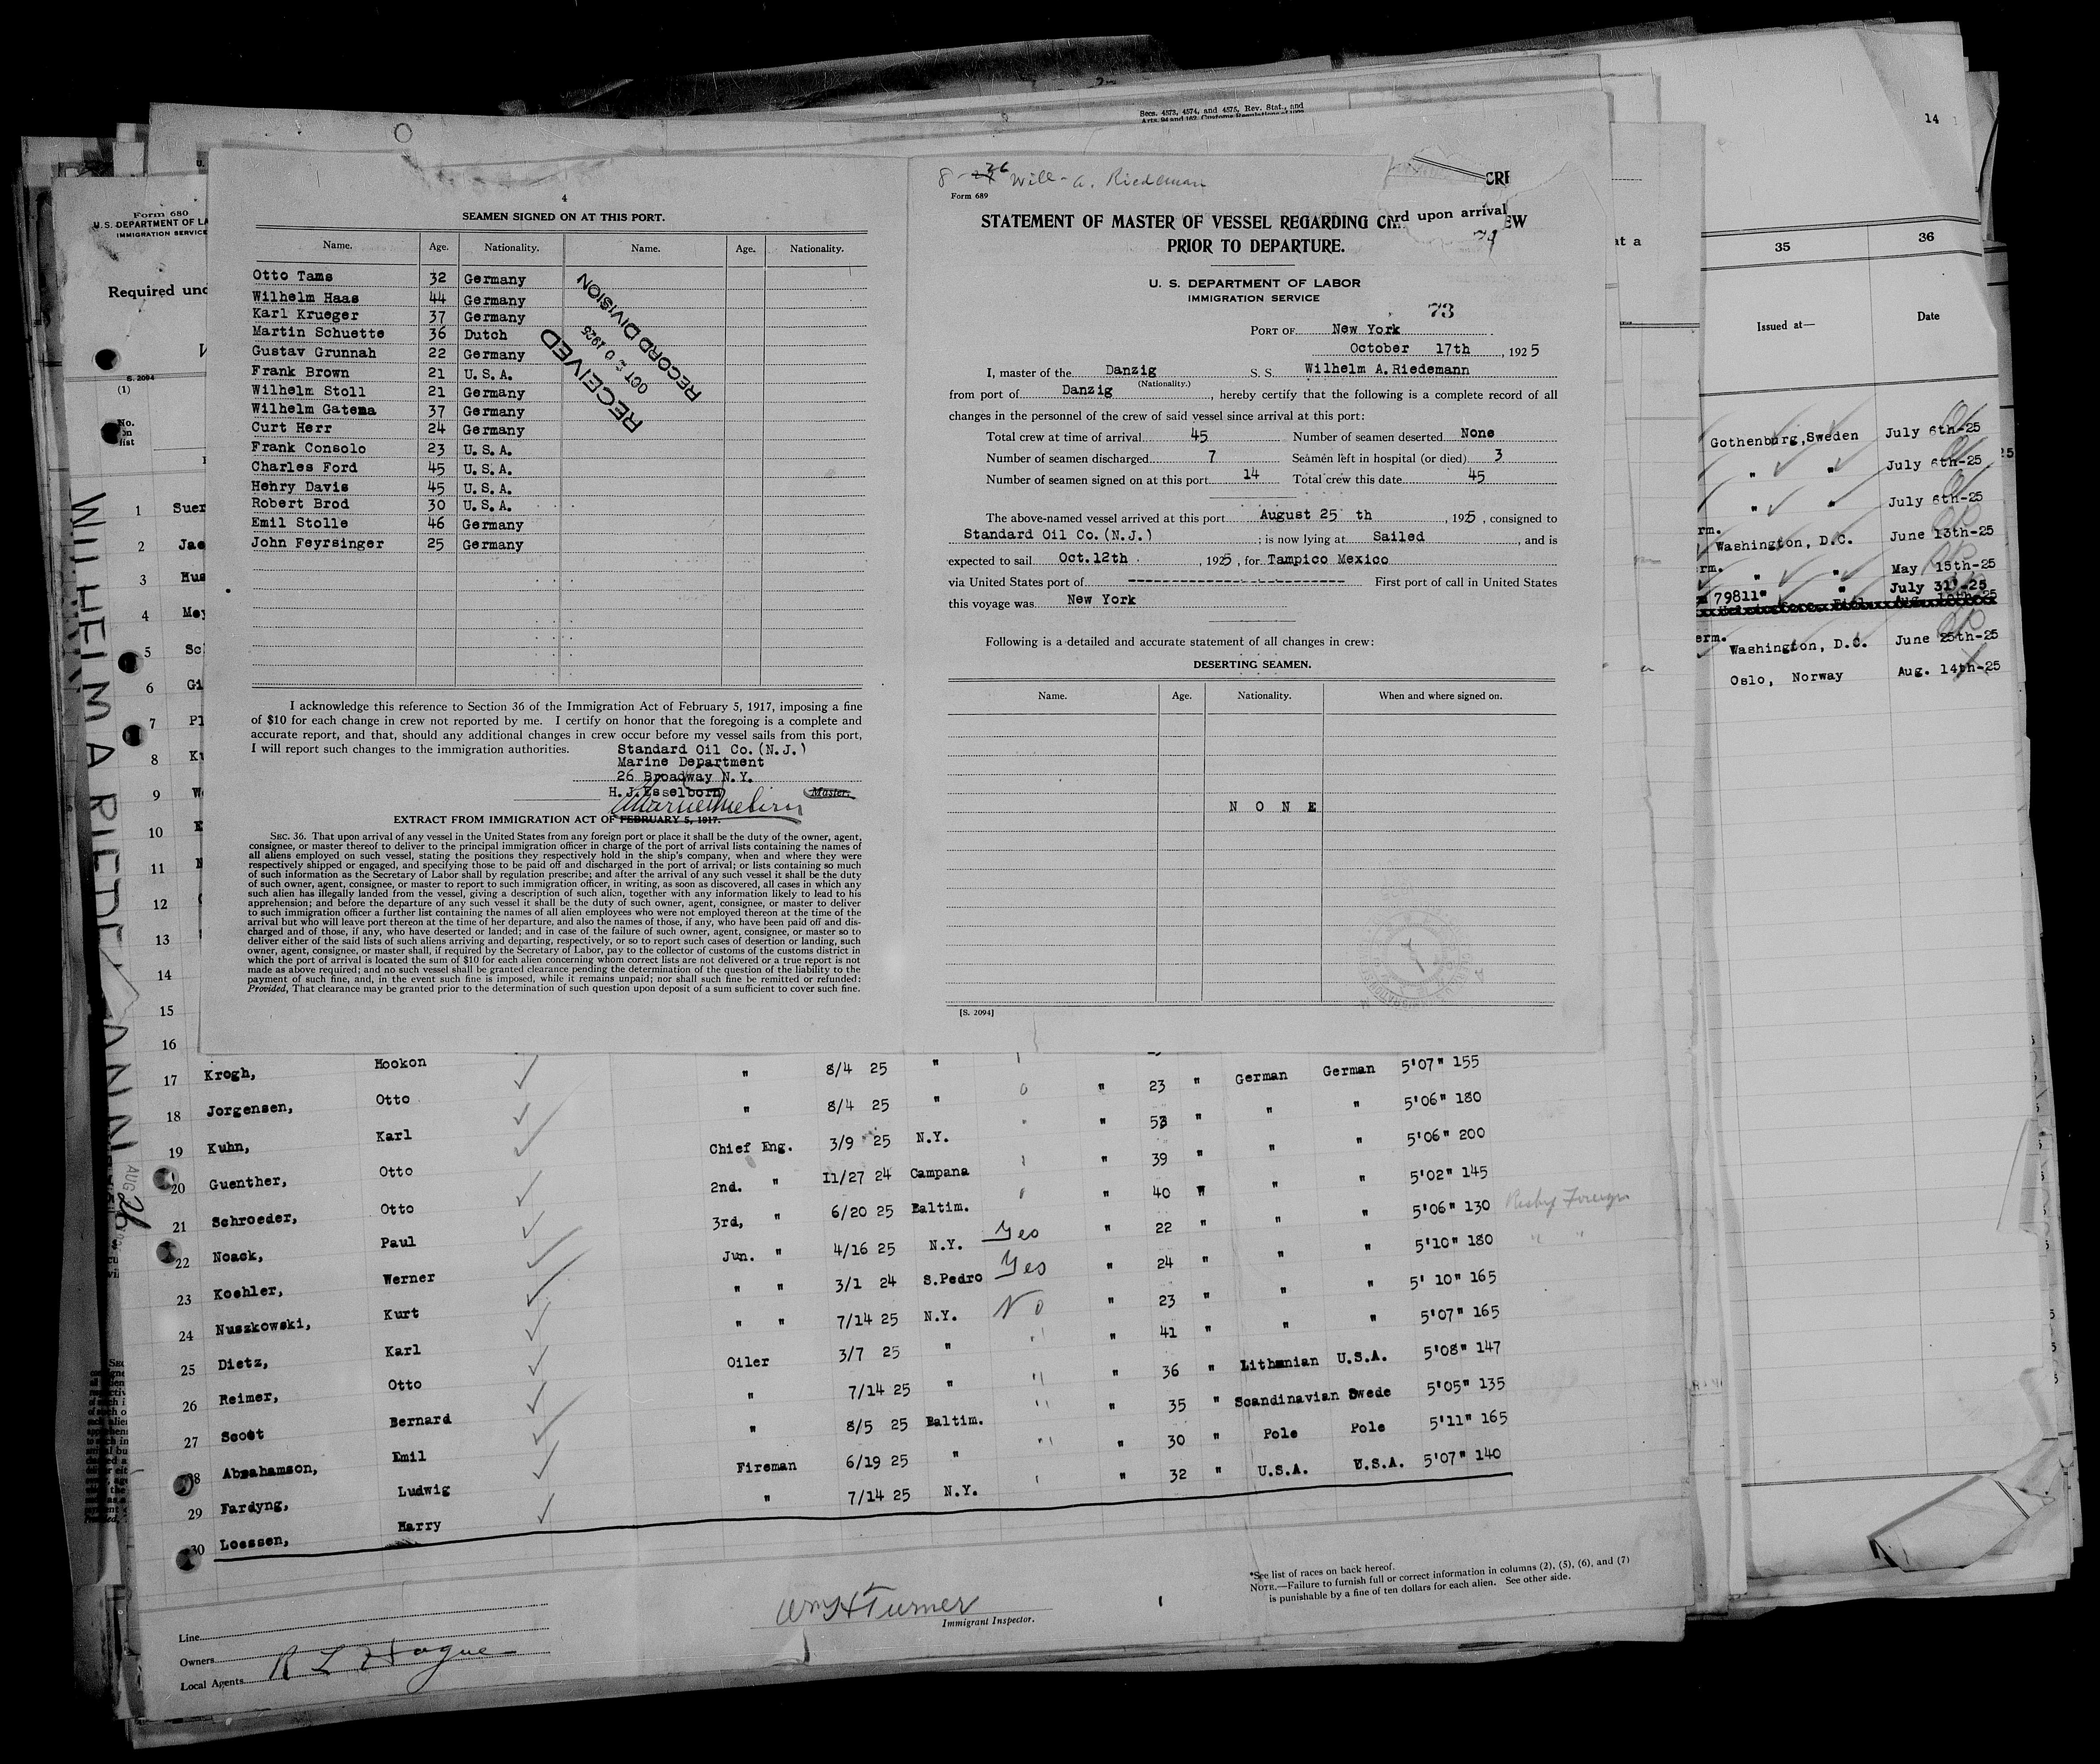 Secs. 4573, 4574, and 4575, Rev. Stat., and
Arts. 94 and 162, Customs Regulations of
14
Form 680
U. S. DEPARTMENT OF LA
IMMIGRATION SERVICE
Required und
S. 2094
(1)
No.
on
list
WILHELM A RIEDEMANN
4
SEAMEN SIGNED ON AT THIS PORT.
Name. Age. Nationality. Name. Age. Nationality.
Otto Tams 32 Germany
Wilhelm Haas 44 Germany
Karl Krueger 37 Germany
Martin Schuette 36 Dutch
Gustav Grunnah 22 Germany
Frank Brown 21 U.S.A.
Wilhelm Stoll 21 Germany
Wilhelm Gatena 37 Germany
Curt Herr 24 Germany
Frank Consolo 23 U.S.A.
Charles Ford 45 U.S.A.
Henry Davis 45 U.S.A.
Robert Brod 30 U.S.A.
Emil Stolle 46 Germany
John Feyrsinger 25 Germany
RECEIVED
OCT 20 1925
RECORD DIVISION
I acknowledge this reference to Section 36 of the Immigration Act of February 5, 1917, imposing a fine
of $10 for each change in crew not reported by me. I certify on honor that the foregoing is a complete and
accurate report, and that, should any additional changes in crew occur before my vessel sails from this port,
I will report such changes to the immigration authorities.
Standard Oil Co.(N.J.)
Marine Department
26 Broadway N.Y.
H.J.Esselborn Master.
EXTRACT FROM IMMIGRATION ACT OF FEBRUARY 5, 1917.
SEC. 36. That upon arrival of any vessel in the United States from any foreign port or place it shall be the duty of the owner, agent,
consignee, or master thereof to deliver to the principal immigration officer in charge of the port of arrival lists containing the names of
all aliens employed on such vessel, stating the positions they respectively hold in the ship's company, when and where they were
respectively shipped or engaged, and specifying those to be paid off and discharged in the port of arrival; or lists containing so much
of such information as the Secretary of Labor shall by regulation prescribe; and after the arrival of any such vessel it shall be the duty
of such owner, agent, consignee, or master to report to such immigration officer, in writing, as soon as discovered, all cases in which any
such alien has illegally landed from the vessel, giving a description of such alien, together with any information likely to lead to his
apprehension; and before the departure of any such vessel it shall be the duty of such owner, agent, consignee, or master to deliver
to such immigration officer a further list containing the names of all alien employees who were not employed thereon at the time of the
arrival but who will leave port thereon at the time of her departure, and also the names of those, if any, who have been paid off and dis-
charged and of those, if any, who have deserted or landed; and in case of the failure of such owner, agent, consignee, or master so to
deliver either of the said lists of such aliens arriving and departing, respectively, or so to report such cases of desertion or landing, such
owner, agent, consignee, or master shall, if required by the Secretary of Labor, pay to the collector of customs of the customs district in
which the port of arrival is located the sum of $10 for each alien concerning whom correct lists are not delivered or a true report is not
made as above required; and no such vessel shall be granted clearance pending the determination of the question of the liability to the
payment of such fine, and, in the event such fine is imposed, while it remains unpaid; nor shall such fine be remitted or refunded:
Provided, That clearance may be granted prior to the determination of such question upon deposit of a sum sufficient to cover such fine.
8-26 Will-a. Riedeman
CRE
Form 689
card upon arrival
STATEMENT OF MASTER OF VESSEL REGARDING CREW
PRIOR TO DEPARTURE.
U. S. DEPARTMENT OF LABOR
IMMIGRATION SERVICE
73
PORT OF New York
October 17th, 1925
I, master of the Danzig S. S. Wilhelm A.Riedemann
(Nationality.)
from port of Danzig, hereby certify that the following is a complete record of all
changes in the personnel of the crew of said vessel since arrival at this port:
Total crew at time of arrival 45 Number of seamen deserted None
Number of seamen discharged 7 Seamen left in hospital (or died) 3
Number of seamen signed on at this port 14 Total crew this date 45
The above-named vessel arrived at this port August 25 th, 1925, consigned to
Standard Oil Co.(N.J.); is now lying at Sailed, and is
expected to sail Oct.12th, 1925, for Tampico Mexico
via United States port of ------------------------ First port of call in United States
this voyage was New York
Following is a detailed and accurate statement of all changes in crew:
DESERTING SEAMEN.
Name. Age. Nationality. When and where signed on.
N O N E
[S. 2094]
35 36
Issued at— Date
Gothenburg,Sweden July 6th-25
" " July 6th-25
" " July 6th-25
rm. Washington, D.C. June 13th-25
rm. " " May 15th-25
79811" " July 31"-25
erm. Washington, D.C. June 25th-25
Oslo, Norway Aug. 14th-25
1 Suer
2 Jae
3 Hus
4 Mey
5 Sc
6 Gi
7 Pl
8 Ku
9 We
10
11
12
13
14
15
16
17 Krogh, Hookon " 8/4 25 "
18 Jorgensen, Otto " 8/4 25 " " 23 " German German 5'07" 155
19 Kuhn, Karl Chief Eng. 3/9 25 N.Y. " 53 " " " 5'06" 180
20 Guenther, Otto 2nd. " 11/27 24 Campana " 39 " " " 5'06" 200
21 Schroeder, Otto 3rd, " 6/20 25 Baltim. " 40 " " " 5'02" 145
22 Noack, Paul Jun. " 4/16 25 N.Y. Yes " 22 " " " 5'06" 130
23 Koehler, Werner " " 3/1 24 S.Pedro Yes " 24 " " " 5'10" 180
24 Nuszkowski, Kurt " " 7/14 25 N.Y. No " 23 " " " 5' 10" 165
25 Dietz, Karl Oiler 3/7 25 " " 41 " " " 5'07" 165
26 Reimer, Otto " 7/14 25 " " 36 " Lithanian U.S.A. 5'08" 147
27 Scott Bernard " 8/5 25 Baltim. " 35 " Scandinavian Swede 5'05" 135
28 Abrahamson, Emil Fireman 6/19 25 " " 30 " Pole Pole 5'11" 165
29 Fardyng, Ludwig " 7/14 25 N.Y. " 32 " U.S.A. U.S.A. 5'07" 140
30 Loessen, Harry
*See list of races on back hereof.
NOTE.—Failure to furnish full or correct information in columns (2), (5), (6), and (7)
is punishable by a fine of ten dollars for each alien. See other side.
Wm H Turner
Immigrant Inspector.
Line
Owners
Local Agents R L Hague